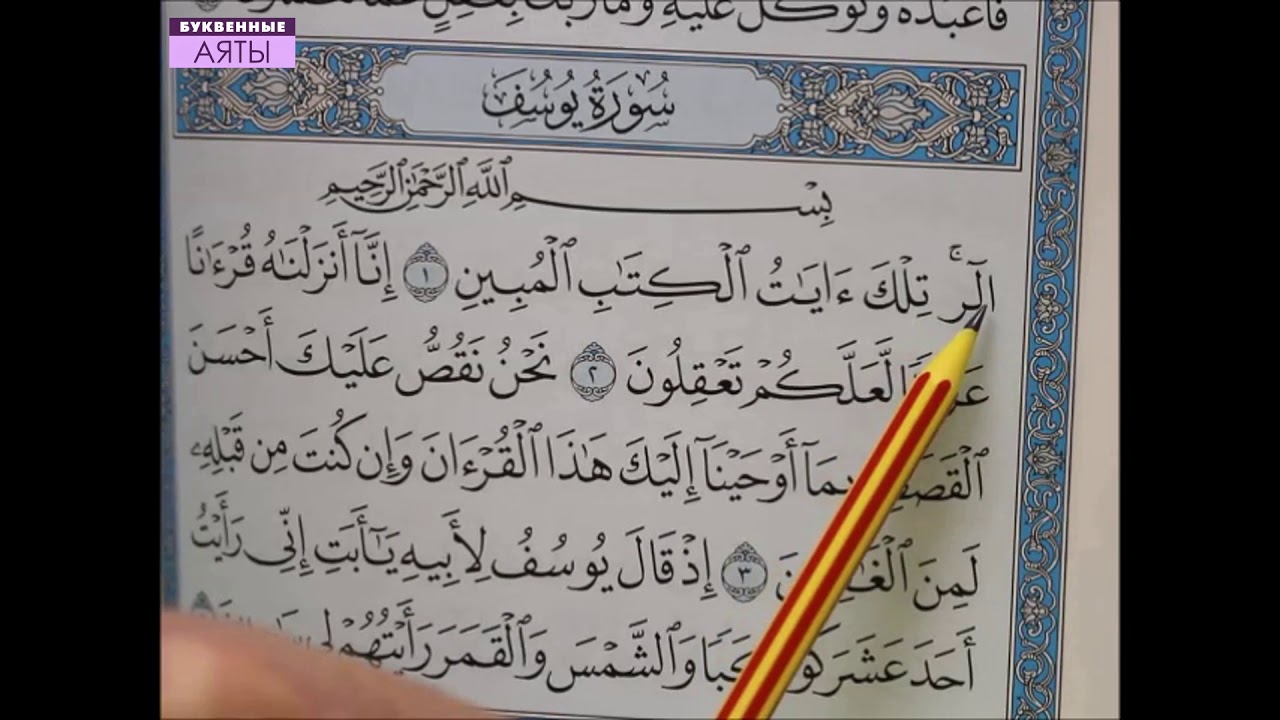 БУКВЕННЫЕ
АЯТЫ
فَٱعْبُدْهُ وَتَوَكَّلْ عَلَيْهِ وَمَا رَبُّكَ بِغَٰفِلٍ عَمَّا تَعْمَلُونَ
سُورَةُ يُوسُفَ
بِسْمِ ٱللَّهِ ٱلرَّحْمَٰنِ ٱلرَّحِيمِ
الٓرۚ تِلْكَ ءَايَٰتُ ٱلْكِتَٰبِ ٱلْمُبِينِ ١ إِنَّآ أَنزَلْنَٰهُ قُرْءَٰنًا
لَّعَلَّكُمْ تَعْقِلُونَ ٢ نَحْنُ نَقُصُّ عَلَيْكَ أَحْسَنَ
بِمَآ أَوْحَيْنَآ إِلَيْكَ هَٰذَا ٱلْقُرْءَانَ وَإِن كُنتَ مِن قَبْلِهِۦ
لَمِنَ ٣ إِذْ قَالَ يُوسُفُ لِأَبِيهِ يَٰٓأَبَتِ إِنِّى رَأَيْتُ
أَحَدَ عَشَرَ كَوْكَبًا وَٱلشَّمْسَ وَٱلْقَمَرَ رَأَيْتُهُمْ لِى